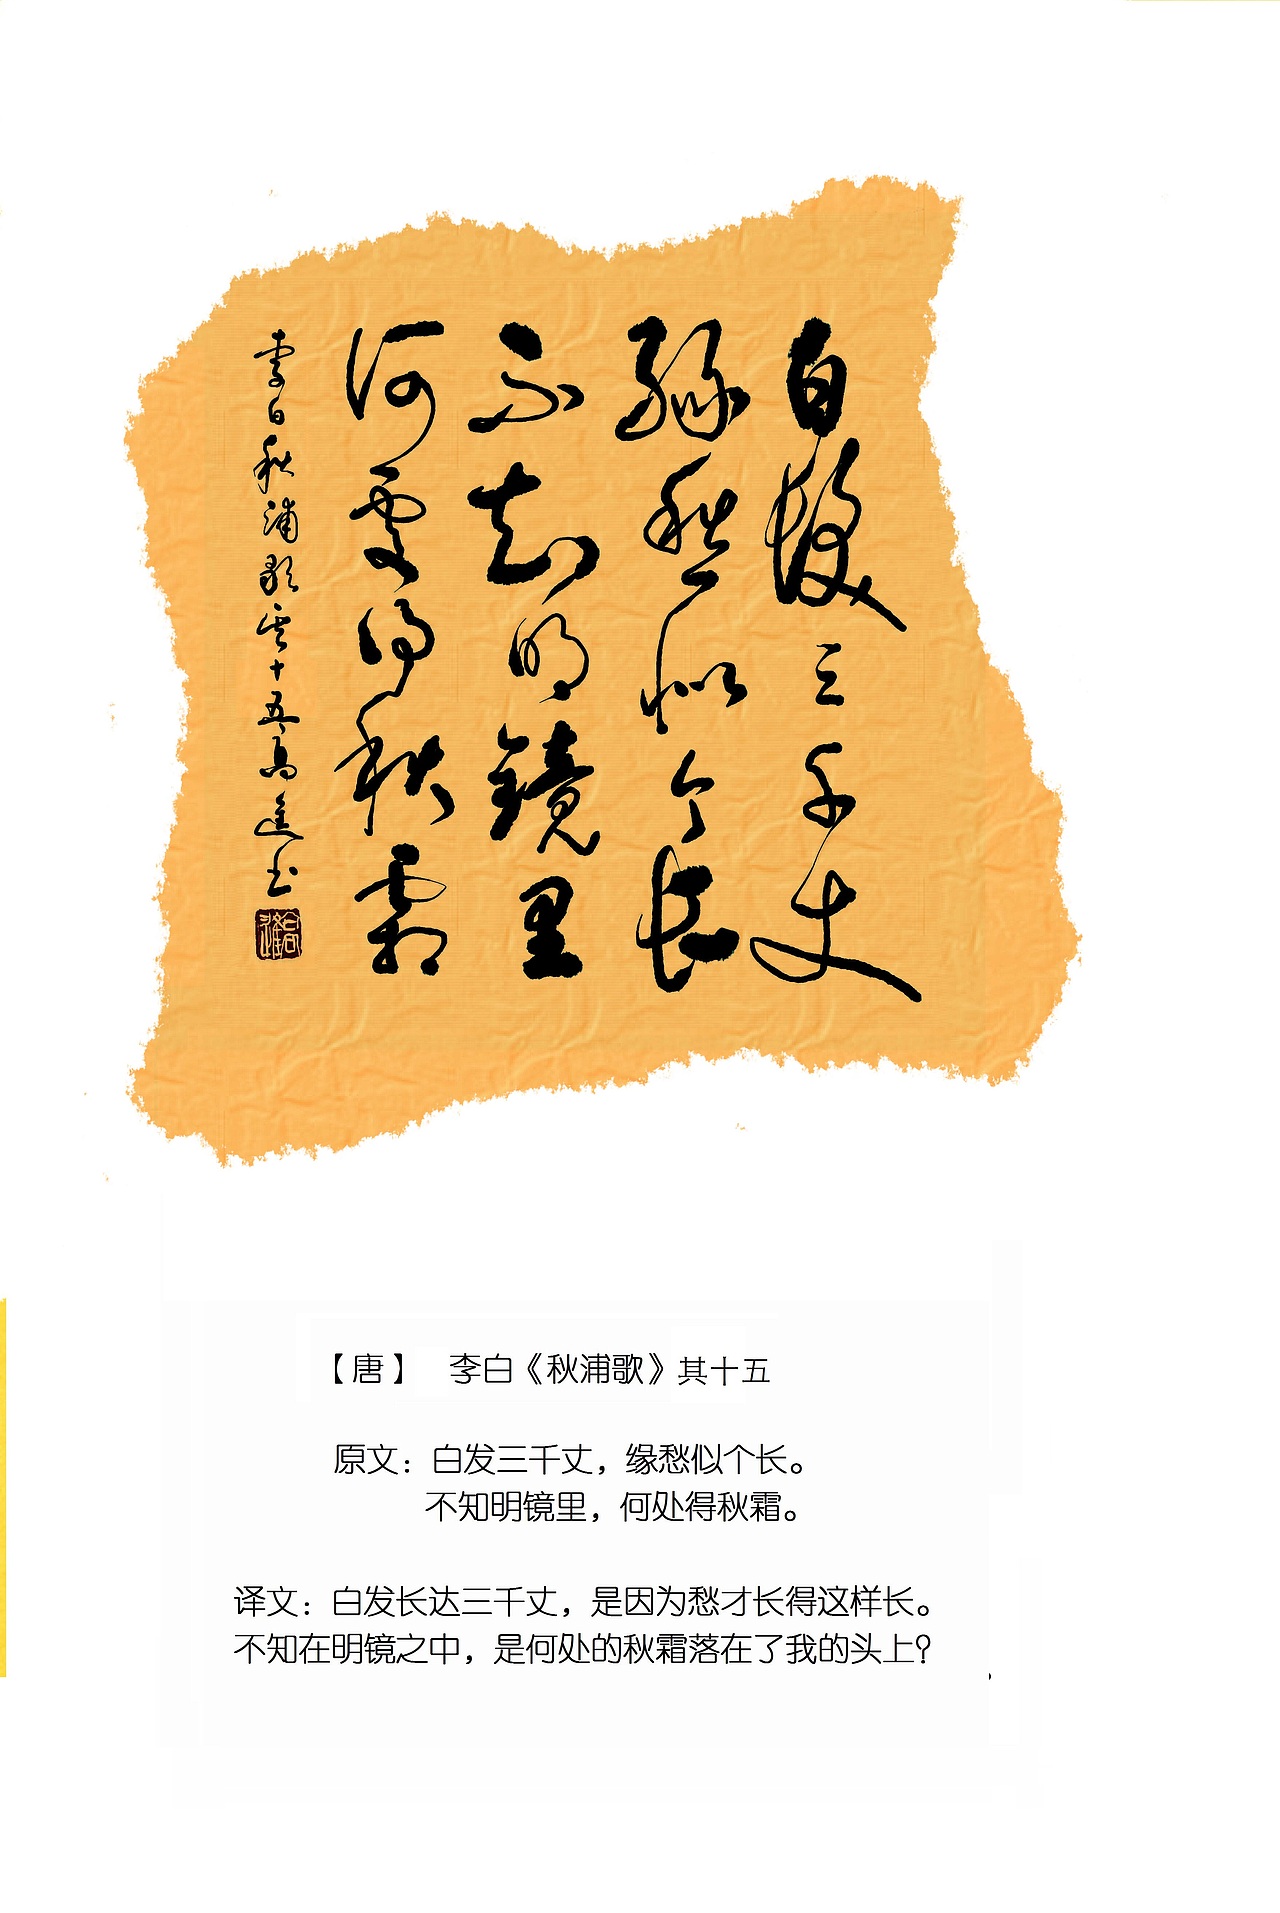 白发三千丈
缘愁似个长
不知明镜里
何处得秋霜
李白秋浦歌之十五高进书
【唐】 李白《秋浦歌》其十五
原文：白发三千丈，缘愁似个长。
不知明镜里，何处得秋霜。
译文：白发长达三千丈，是因为愁才长得这样长。
不知在明镜之中，是何处的秋霜落在了我的头上？